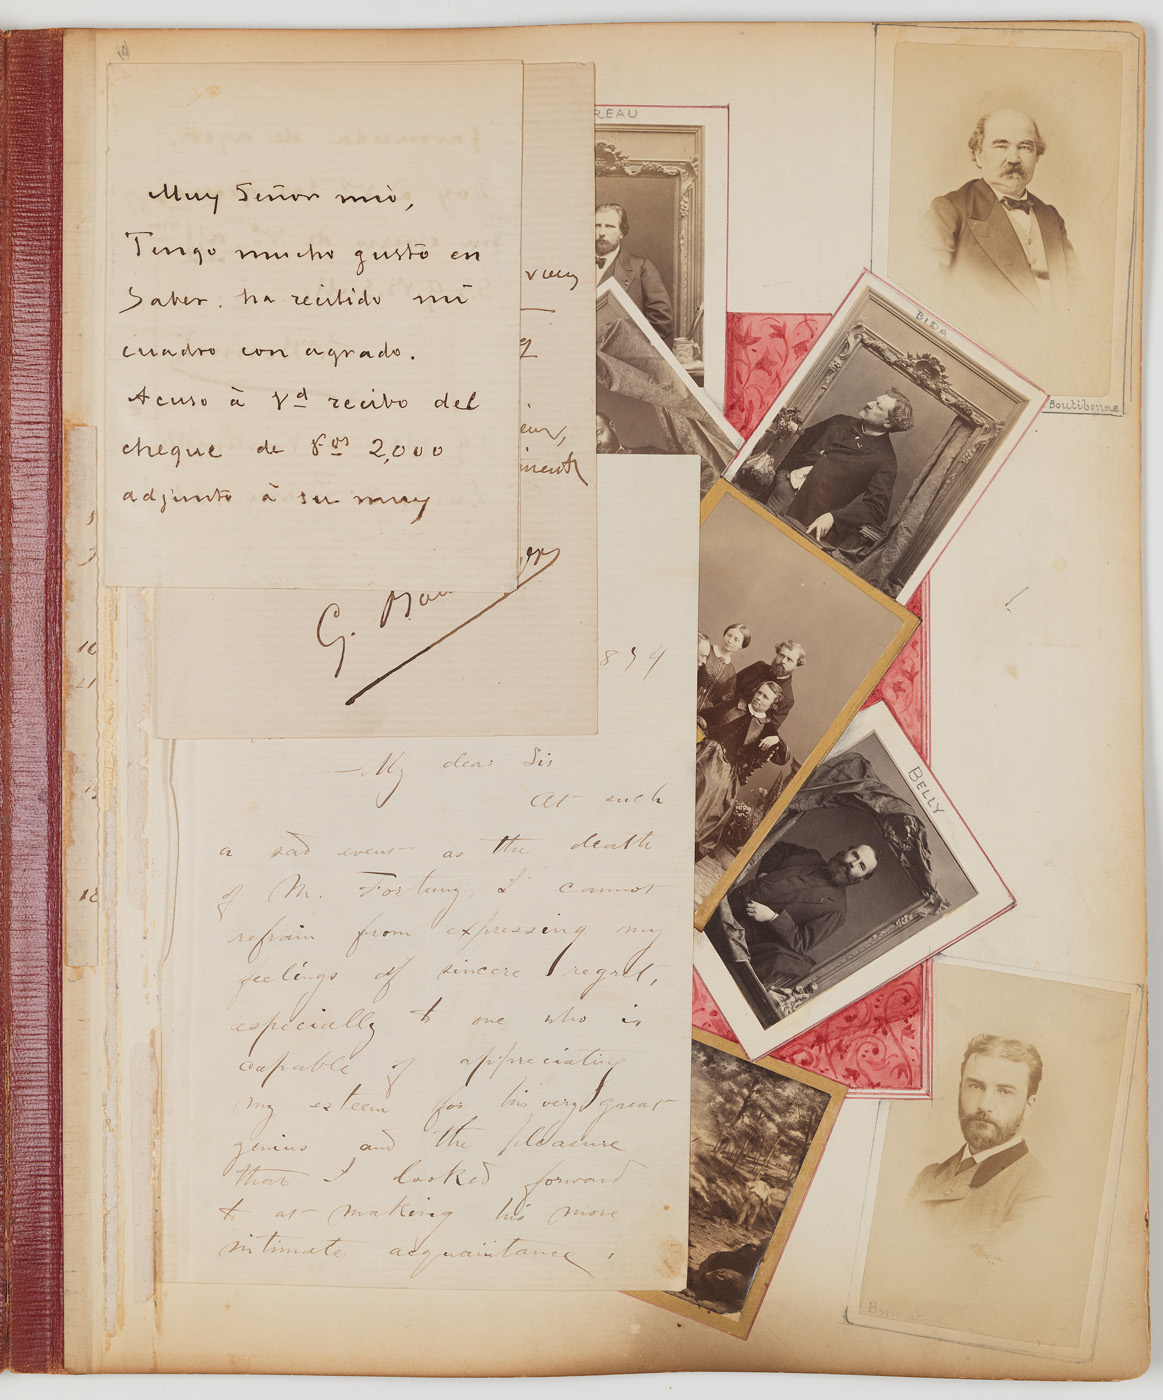 Muy Señor mio,
Tengo mucho gusto en
Saber. ha recibido mi
cuadro con agrado.
Acuso à Vd recibo del
cheque de Fcos 2,000
adjunto à su muy
G.
894
My dear Sir
At such
a sad event as the death
of M. Fortuny, I cannot
refrain from expressing my
feelings of sincere regret,
especially to one who is
capable of appreciating
my esteem for his very great
genius and the pleasure
that I looked forward
to at making his more
intimate acquaintance,
REAU
Boutibonne
BIDA
BELLY
10
18